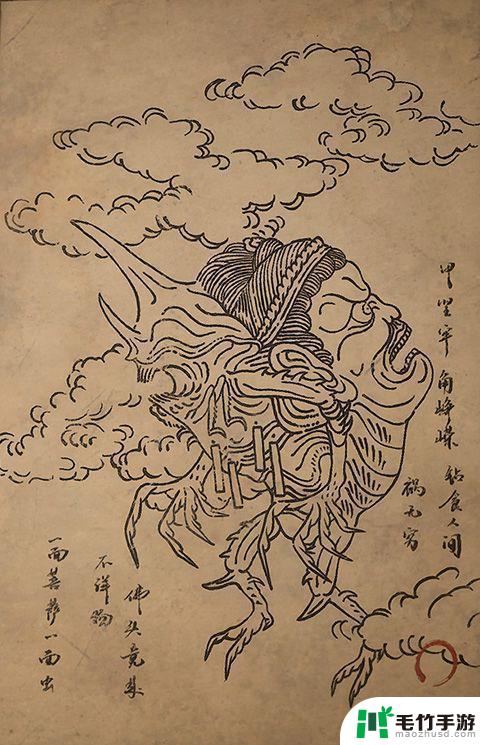 甲坚牢 角峥嵘 钻食人间
祸无穷
佛头竟成
不祥物
一面菩萨一面虫
毛竹手游
maozhusd.com